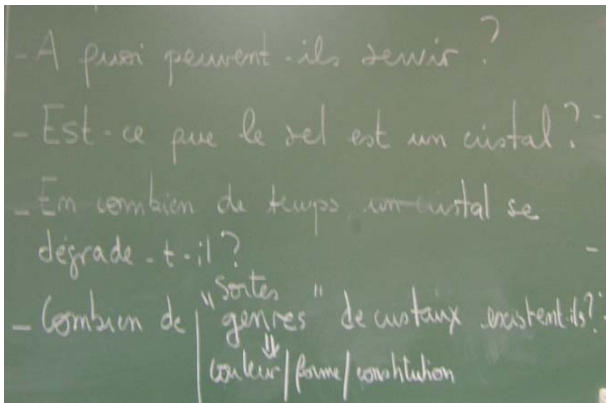 - A quoi peuvent-ils servir ?
- Est-ce que le sel est un cristal ? -
- En combien de temps un cristal se
dégrade-t-il ? -
"Sortes
- Combien de genres" de cristaux existent-ils ?
⇓
couleur / forme / constitution